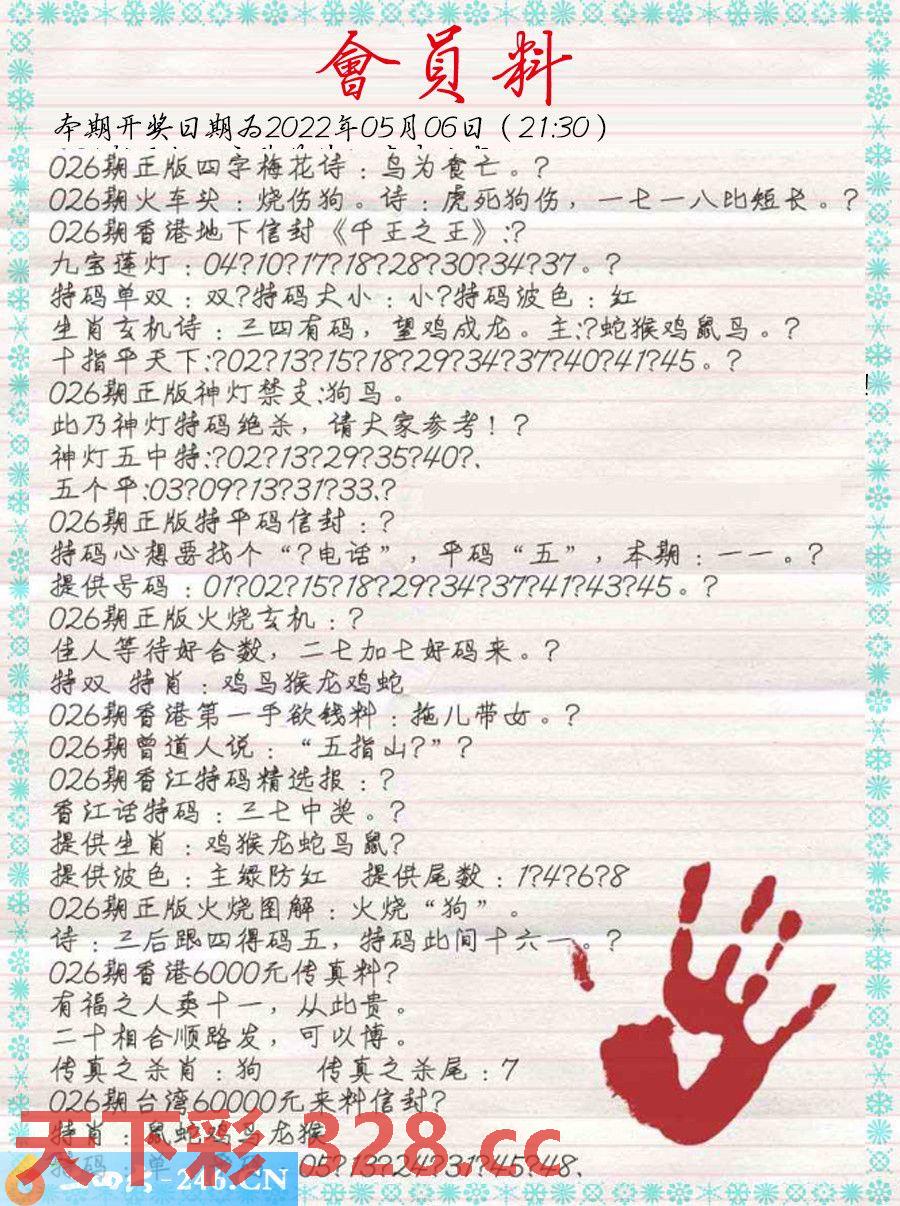 會員料
本期开奖日期为2022年05月06日（21:30）
026期正版四字梅花诗：鸟为食亡。?
026期火车头：烧伤狗。诗：虎死狗伤，一七一八比短长。?
026期香港地下信封《千王之王》:?
九宝莲灯：04?10?17?18?28?30?34?37。?
特码单双：双?特码大小：小?特码波色：红
生肖玄机诗：三四有码，望鸡成龙。主:?蛇猴鸡鼠马。?
十指平天下:?02?13?15?18?29?34?37?40?41?45。?
!
026期正版神灯禁支:狗马。
此乃神灯特码绝杀，请大家参考！?
神灯五中特:?02?13?29?35?40?.
五个平:03?09?13?31?33.?
026期正版特平码信封：?
特码心想要找个“?电话”，平码“五”，本期：一一。?
提供号码：01?02?15?18?29?34?37?41?43?45。?
026期正版火烧玄机：?
佳人等待好合数，二七加七好码来。?
特双 特肖：鸡马猴龙鸡蛇
026期香港第一手欲钱料：拖儿带女。?
026期曾道人说：“五指山?”?
026期香江特码精选报：?
香江话特码：三七中奖。?
提供生肖：鸡猴龙蛇马鼠?
提供波色：主绿防红 提供尾数：1?4?6?8
026期正版火烧图解：火烧“狗”。
诗：三后跟四得码五，特码此间十六一。?
026期香港6000元传真料?
有福之人卖十一，从此贵。
二十相合顺路发，可以博。
传真之杀肖：狗 传真之杀尾：7
026期台湾60000元来料信封?
特肖：鼠蛇鸡马龙猴
特码：单 05?13?24?31?45?48.
天下彩 328.cc
-246.CN